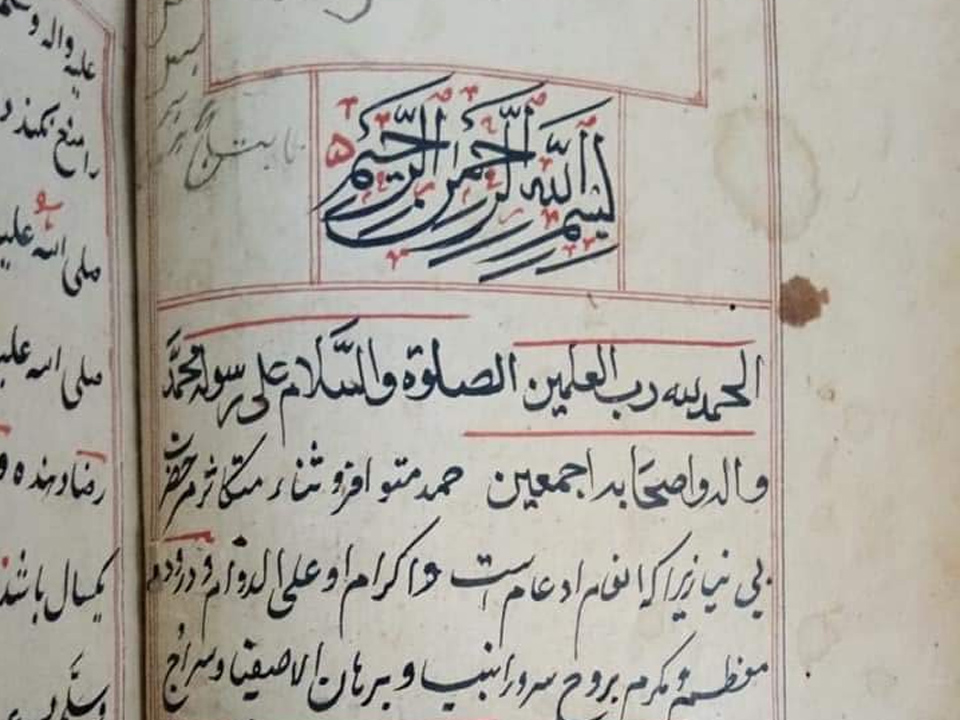 بسم الله الرحمن الرحيم
الحمد لله رب العلمين الصلوة والسلام على رسوله محمد
واله واصحابه اجمعين حمد متوافر و ثناء متكاثر مر حضرت
بی نیاز یرا که انعام او عام است و اکرام او علی الدوام و درود
معظم و مکرم بر روح سرور انبیا و برهان الاصفیا و سراج
علیه واله وسلم
را منع کنند
صلی الله علیه
صلی الله علیه
رضا دهنده
یکسال باشد